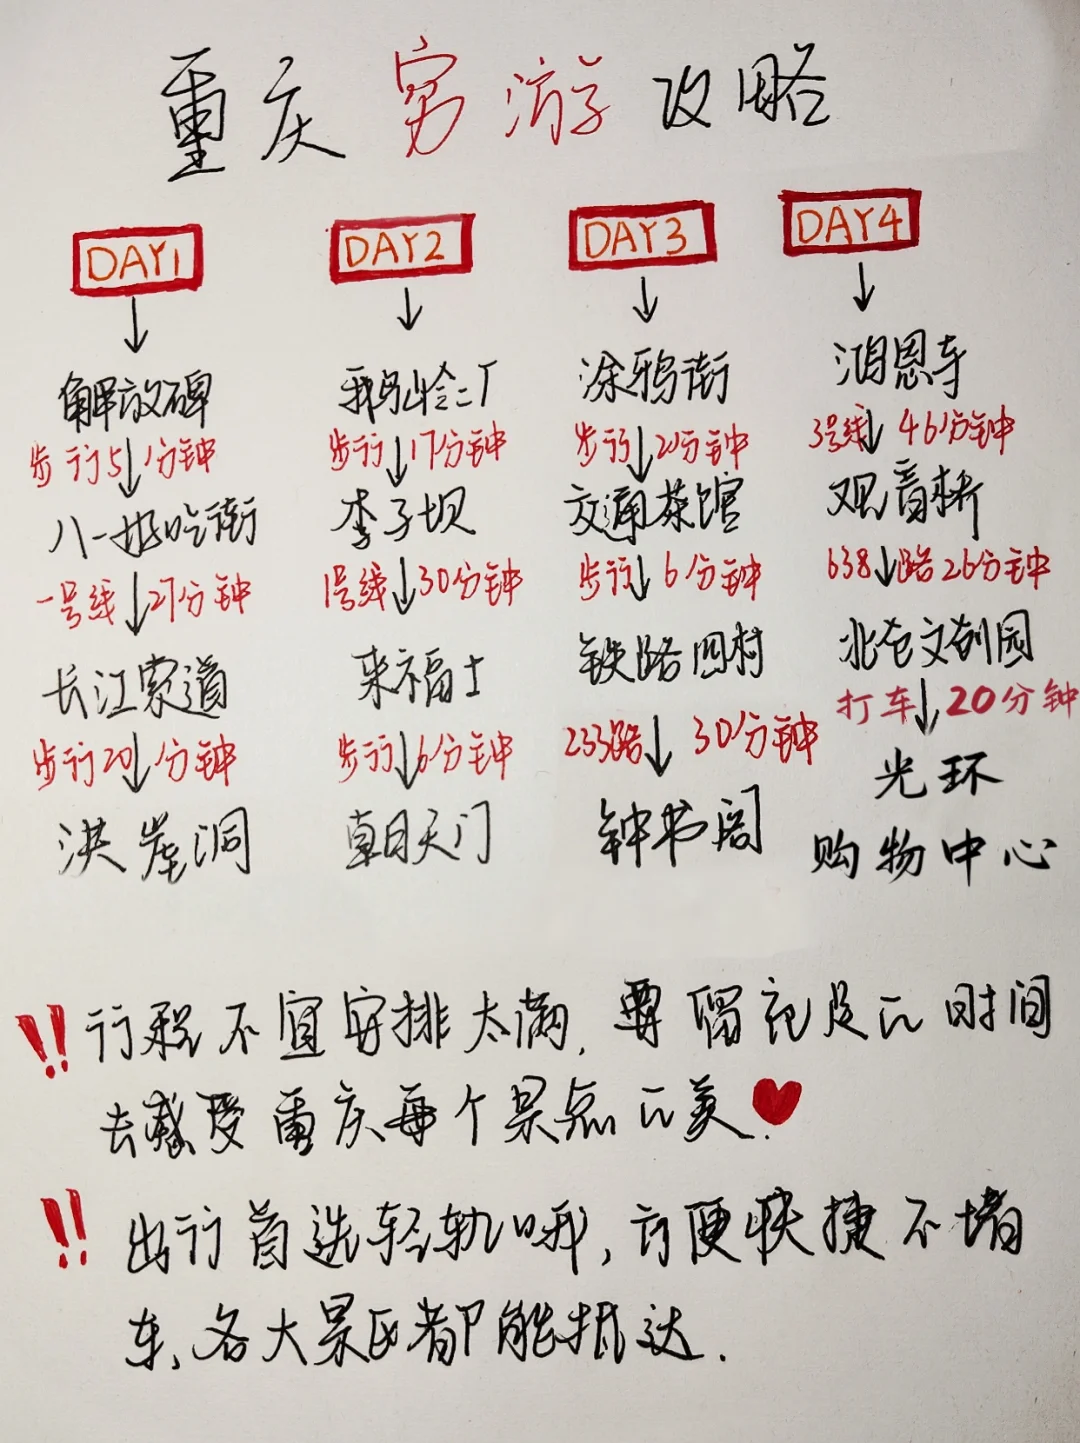 重庆穷游攻略
DAY1
解放碑
步行5分钟
八一好吃街
一号线27分钟
长江索道
步行20分钟
洪崖洞
DAY2
鹅岭二厂
步行17分钟
李子坝
1号线30分钟
来福士
步行6分钟
朝天门
DAY3
涂鸦街
步行2分钟
交通茶馆
步行6分钟
铁路四村
233路30分钟
钟书阁
DAY4
鸿恩寺
3号线46分钟
观音桥
638路26分钟
北仓文创园
打车20分钟
光环
购物中心
!! 行程不宜安排太满,要留充足的时间
去感受重庆每个景点的美.
!! 出行首选轻轨哦,方便快捷不堵
车、各大景区都能抵达.